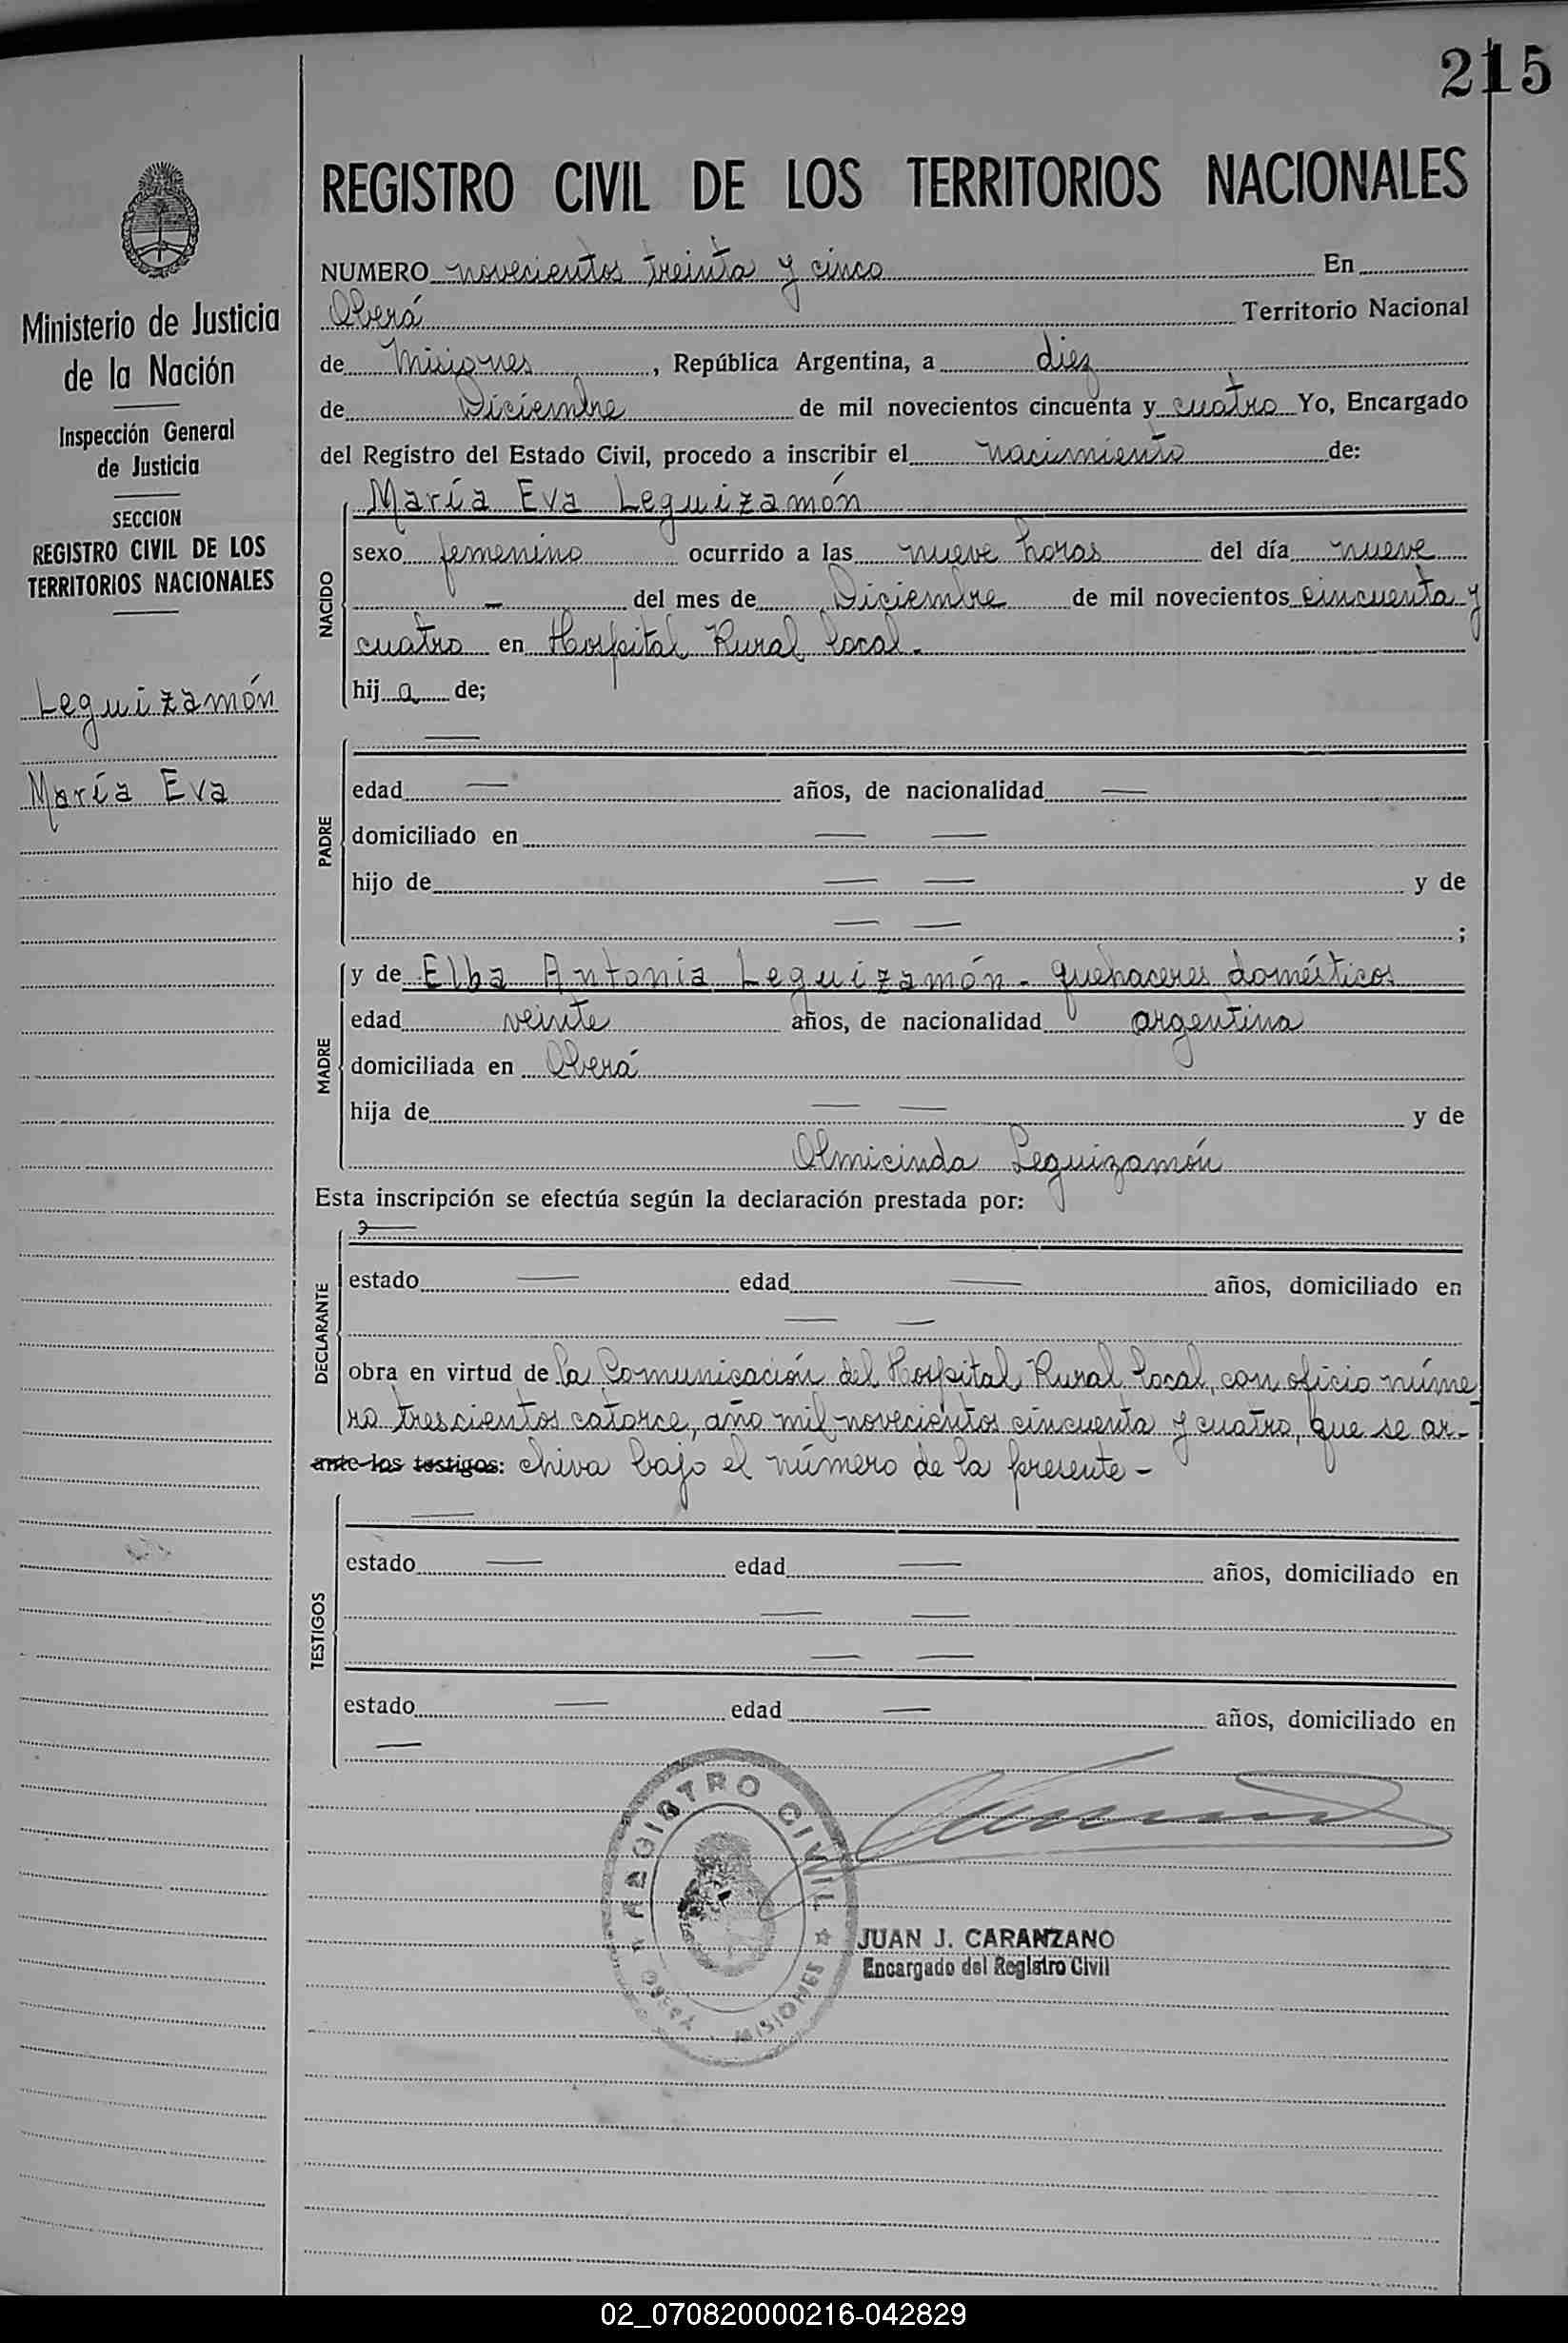 215
REGISTRO CIVIL DE LOS TERRITORIOS NACIONALES
Ministerio de Justicia
de la Nación
Inspección General
de Justicia
SECCION
REGISTRO CIVIL DE LOS
TERRITORIOS NACIONALES
Leguizamón
María Eva
NUMERO novecientos treinta y cinco En
Oberá Territorio Nacional
de Misiones, República Argentina, a diez
de Diciembre de mil novecientos cincuenta y cuatro Yo, Encargado
del Registro del Estado Civil, procedo a inscribir el nacimiento de:
NACIDO
María Eva Leguizamón
sexo femenino ocurrido a las nueve horas del día nueve
— del mes de Diciembre de mil novecientos cincuenta y
cuatro en Hospital Rural local.
hij a de;
PADRE
—
edad — años, de nacionalidad —
domiciliado en — —
hijo de — — y de
— — ;
MADRE
y de Elba Antonia Leguizamón - quehaceres domésticos
edad veinte años, de nacionalidad argentina
domiciliada en Oberá
hija de — — y de
Olmicinda Leguizamón
Esta inscripción se efectúa según la declaración prestada por:
DECLARANTE
—
estado — edad — años, domiciliado en
— —
obra en virtud de la Comunicación del Hospital Rural local, con oficio núme
ro trescientos catorce, año mil novecientos cincuenta y cuatro, que se ar-
ante los testigos: chiva bajo el número de la presente -
TESTIGOS
—
estado — edad — años, domiciliado en
— —
— —
estado — edad — años, domiciliado en
—
REGISTRO CIVIL
OBERA MISIONES
JUAN J. CARANZANO
Encargado del Registro Civil
02_070820000216-042829